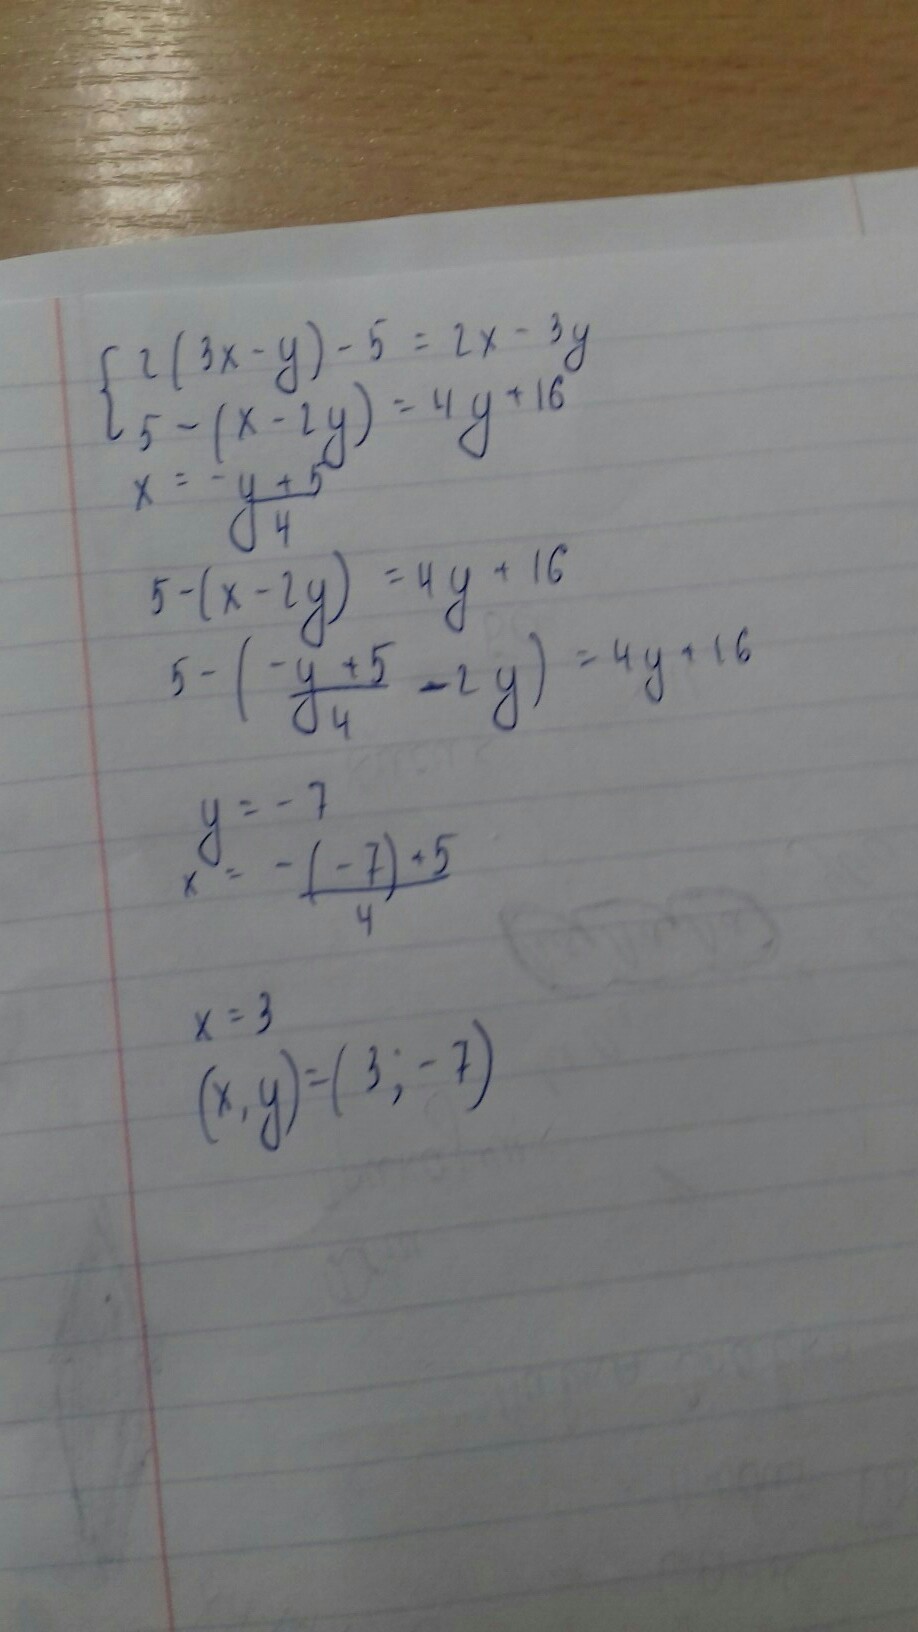 { 2(3x-y)-5 = 2x-3y
5-(x-2y) = 4y+16
x = (-y+5)/4
5-(x-2y) = 4y+16
5-((-y+5)/4 - 2y) = 4y+16
y = -7
x = (-(-7)+5)/4
x = 3
(x,y)=(3;-7)